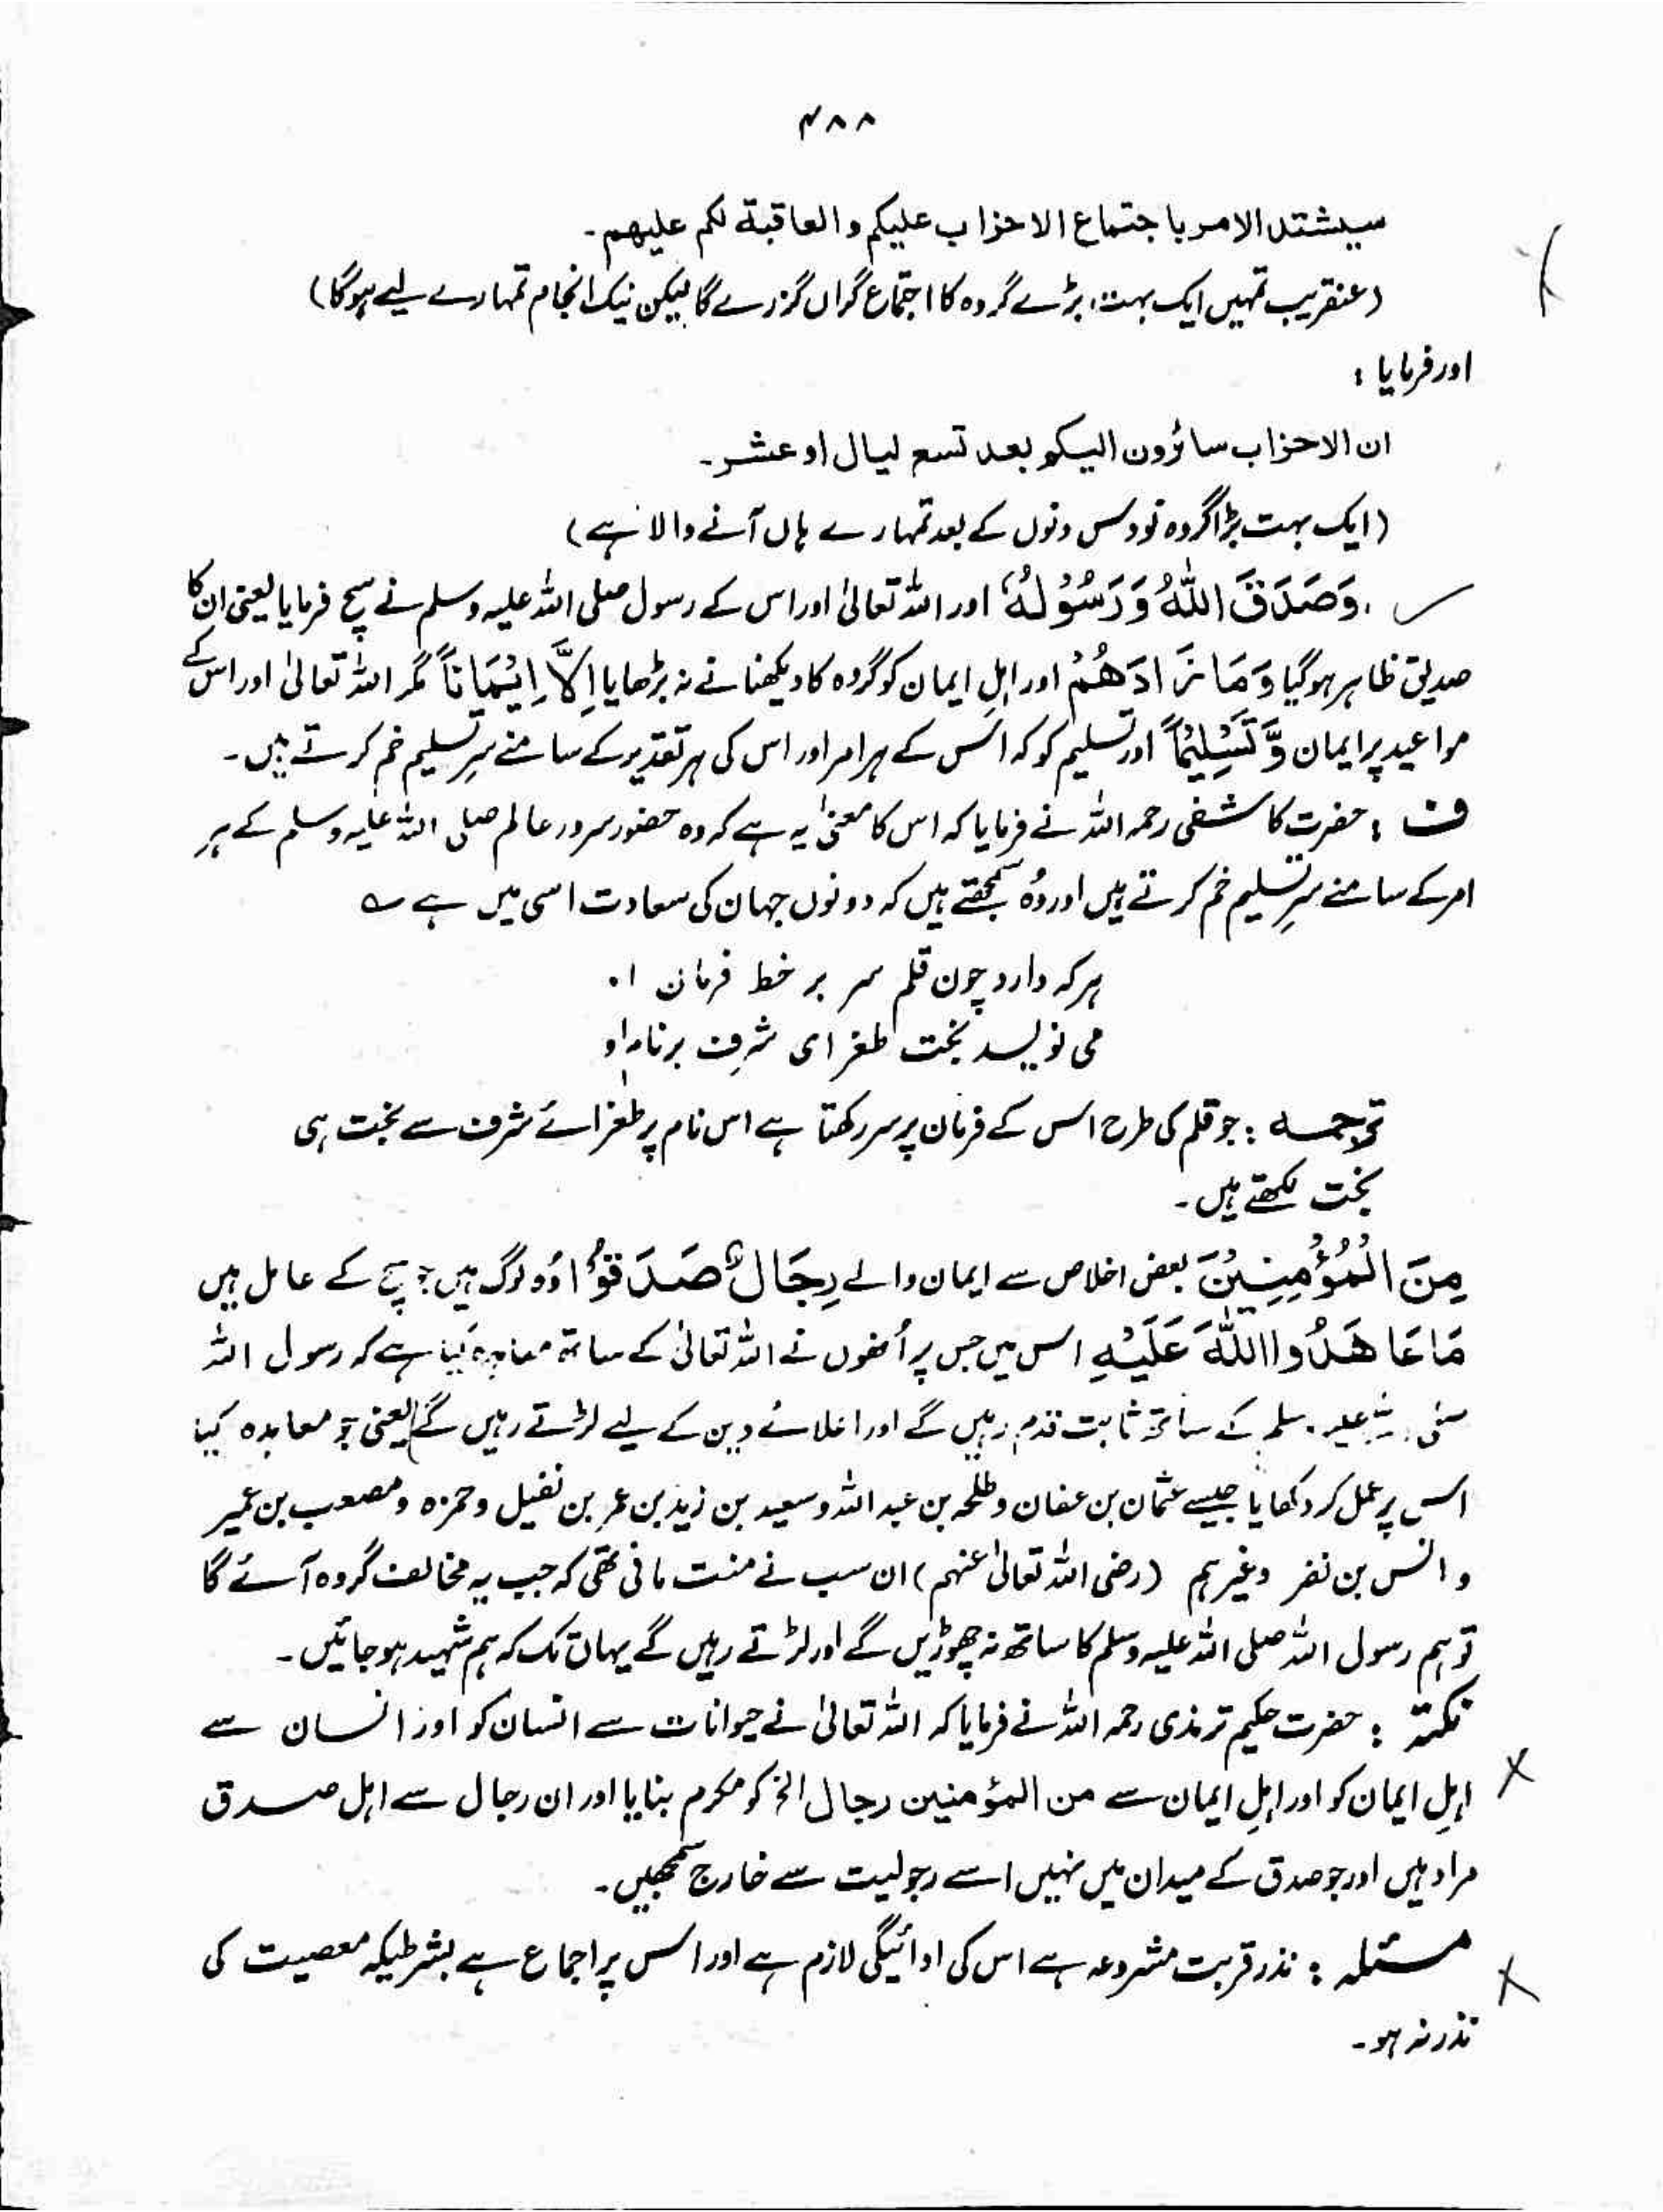 ۴۸۸
سیشتد الامر باجتماع الاحزاب علیکم والعاقبة لکم علیهم۔
(عنقریب تمہیں ایک بہت بڑے گروہ کا اجتماع گراں گزرے گا لیکن نیک انجام تمہارے لیے ہوگا)
اور فرمایا :
ان الاحزاب سائرون الیکم بعد تسع لیال او عشر۔
(ایک بہت بڑا گروہ نو دس دنوں کے بعد تمہارے ہاں آنے والا ہے)
وَصَدَقَ اللّٰهُ وَرَسُوْلُهٗ اور اللہ تعالیٰ اور اس کے رسول صلی اللہ علیہ وسلم نے سچ فرمایا یعنی ان کا
صدق ظاہر ہوگیا وَمَا زَادَهُمْ اور اہلِ ایمان کو گروہ کا دیکھنا نے نہ بڑھایا اِلَّا اِيْمَانًا مگر اللہ تعالیٰ اور اس کے
مواعید پر ایمان وَّتَسْلِيْمًا اور تسلیم کو کہ اس کے ہر امر اور اس کی ہر تقدیر کے سامنے سرِ تسلیم خم کرتے ہیں۔
ف : حضرت کاشفی رحمہ اللہ نے فرمایا کہ اس کا معنیٰ یہ ہے کہ وہ حضور سرور عالم صلی اللہ علیہ وسلم کے ہر
امر کے سامنے سرِ تسلیم خم کرتے ہیں اور وُہ سمجھتے ہیں کہ دونوں جہان کی سعادت اسی میں ہے ؎
ہر کہ دارد چون قلم سر بر خط فرمان او
می نویسد بخت طغرای شرف بر نام او
ترجمہ : جو قلم کی طرح اس کے فرمان پر سر رکھتا ہے اس نام پر طغرائے شرف سے بخت ہی
بخت لکھتے ہیں۔
مِنَ الْمُؤْمِنِيْنَ بعض اخلاص سے ایمان والے رِجَالٌ صَدَقُوْا وُہ لوگ ہیں جو سچ کے عامل ہیں
مَا عَاهَدُوا اللّٰهَ عَلَيْهِ اس میں جس پر اُنھوں نے اللہ تعالیٰ کے ساتھ معاہدہ کیا ہے کہ رسول اللہ
صلی اللہ علیہ وسلم کے ساتھ ثابت قدم رہیں گے اور اعلائے دین کے لیے لڑتے رہیں گے یعنی جو معاہدہ کیا
اس پر عمل کر دکھایا جیسے عثمان بن عفان و طلحہ بن عبد اللہ و سعید بن زید بن عمر بن نفیل و حمزہ و مصعب بن عمیر
و انس بن نفر وغیرہم (رضی اللہ تعالیٰ عنہم) ان سب نے منت مانی تھی کہ جب یہ مخالف گروہ آئے گا
تو ہم رسول اللہ صلی اللہ علیہ وسلم کا ساتھ نہ چھوڑیں گے اور لڑتے رہیں گے یہاں تک کہ ہم شہید ہو جائیں۔
نکتہ : حضرت حکیم ترمذی رحمہ اللہ نے فرمایا کہ اللہ تعالیٰ نے حیوانات سے انسان کو اور انسان سے
اہلِ ایمان کو اور اہلِ ایمان سے من المؤمنین رجال الخ کو مکرم بنایا اور ان رجال سے اہل صدق
مراد ہیں اور جو صدق کے میدان میں نہیں اسے رجولیت سے خارج سمجھیں۔
مسئلہ : نذر قربت مشروعہ ہے اس کی ادائیگی لازم ہے اور اس پر اجماع ہے بشرطیکہ معصیت کی
نذر نہ ہو۔